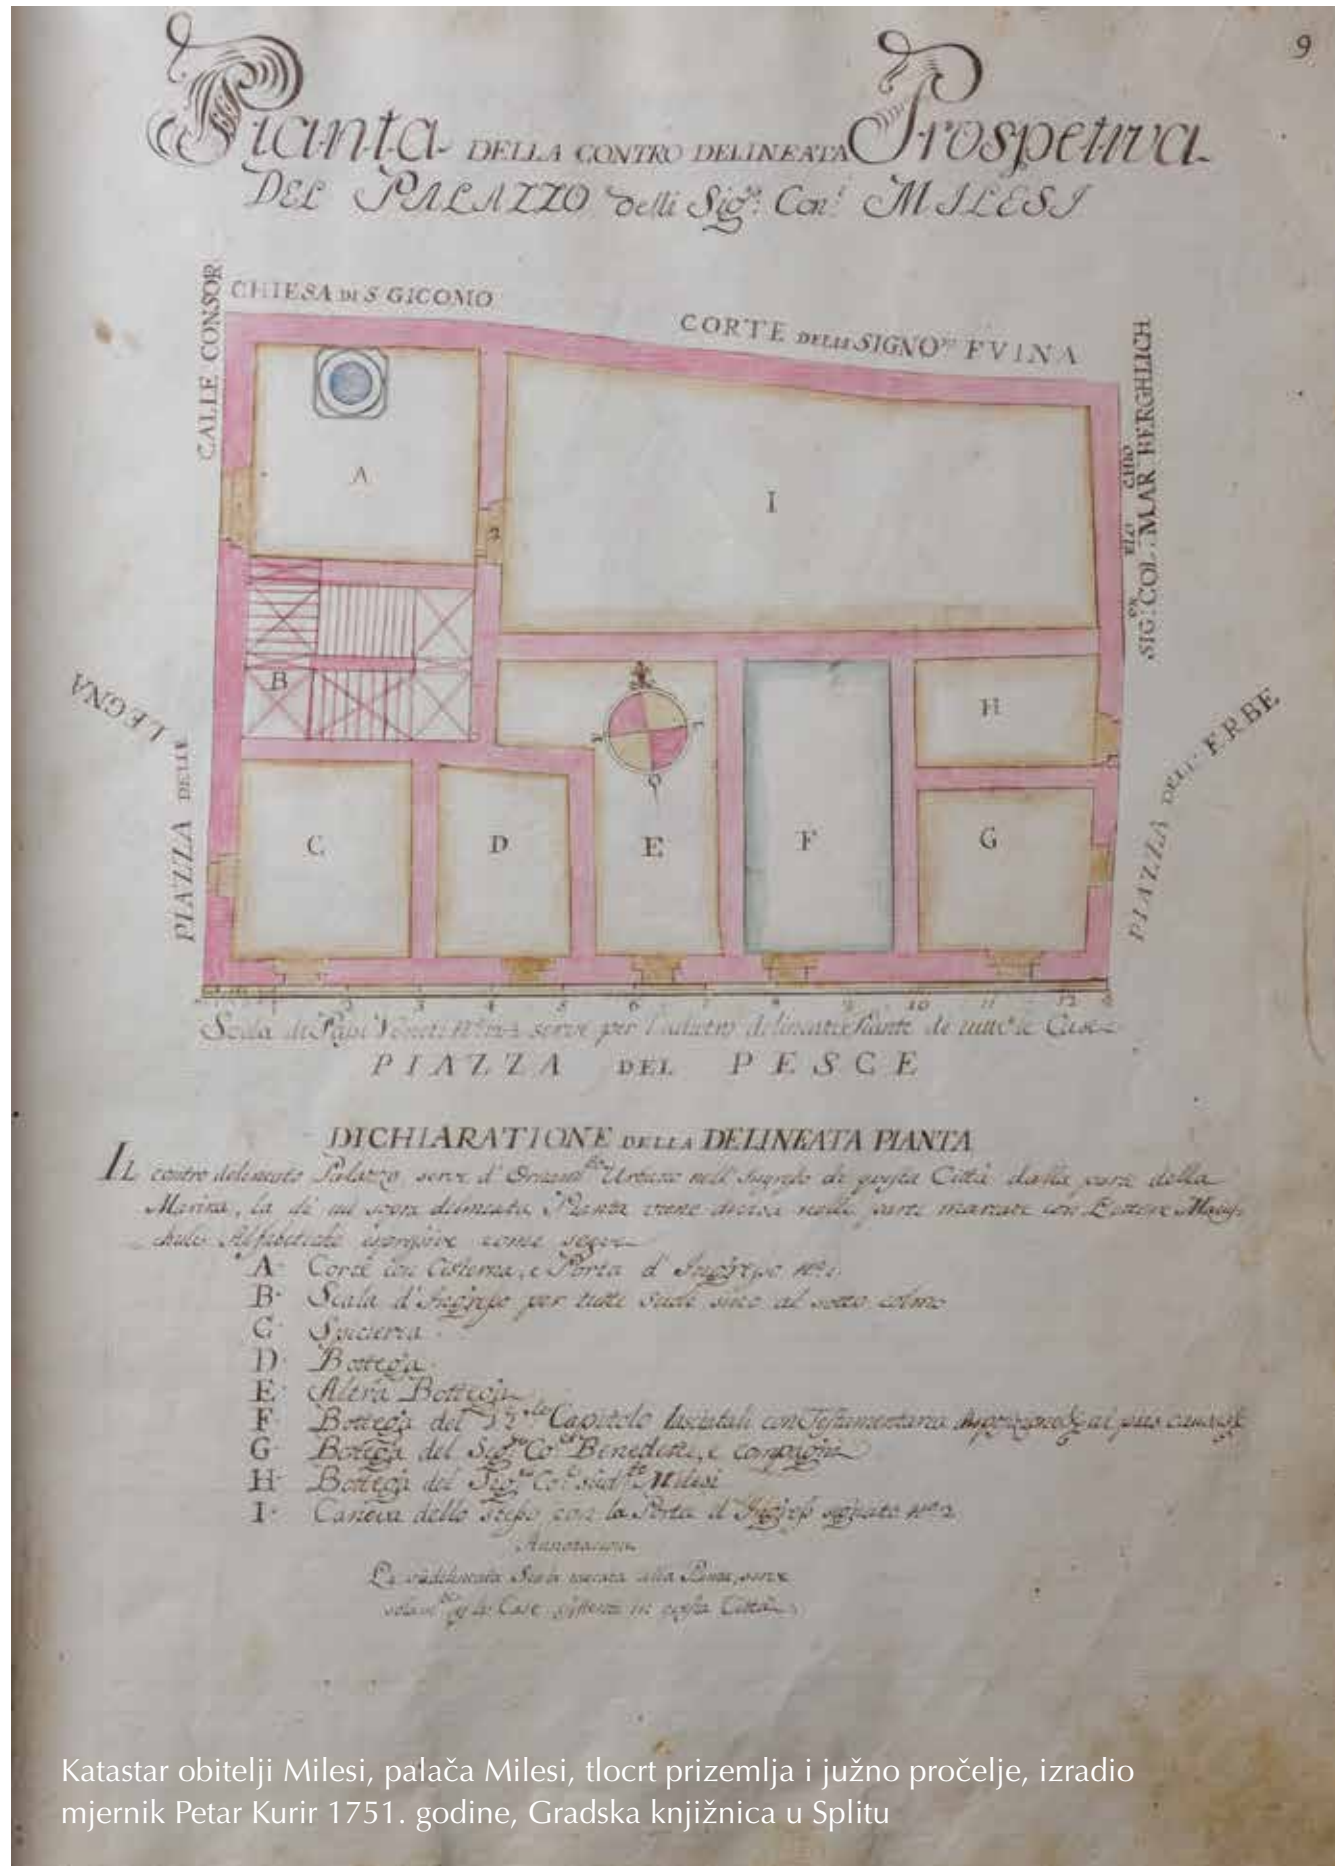 9
Pianta DELLA CONTRO DELINEATA Prospetiva
DEL PALAZZO delli Sig.ri Con.i MILESI
CHIESA DI S GICOMO
CORTE DELLI SIGNO.ri FVINA
CALLE CONSOR
SIG.or COL. MAR BERGHLICH
ELO CHIO
A
I
2
B
H
C
D
E
F
G
PIAZZA DELLE LEGNA
PIAZZA DELL' ERBE
1 2 3 4 5 6 7 8 9 10 11 12
Scala di Passi Veneti serve per l'adietro delineate Piante de tutte le Case
PIAZZA DEL PESCE
DICHIARATIONE DELLA DELINEATA PIANTA
IL contro delineato Palazzo serve d' Urbano nell' Ingresso di questa Città dalla parte della
Marina, la di cui sopra delineata Pianta viene divisa nelle parte marcate con Lettere
Alfabetiche come segue
A Corte con Cisterna, e Porta d' Ingresso No. 1
B Scala d' Ingresso per tutte sino al sotto colmo
C Spicieria
D Bottega
E Altra Bottega
F Bottega del Capitolo lasciatali con Testamentaria
G Bottega del Sig.r Co. Benedetti, e compagni
H Bottega del Sig.r Co. Milesi
I Caneva dello stesso con la Porta d' Ingresso segnato No. 2
Annotacion
La Scala serve
le Case in questa Città
Katastar obitelji Milesi, palača Milesi, tlocrt prizemlja i južno pročelje, izradio
mjernik Petar Kurir 1751. godine, Gradska knjižnica u Splitu